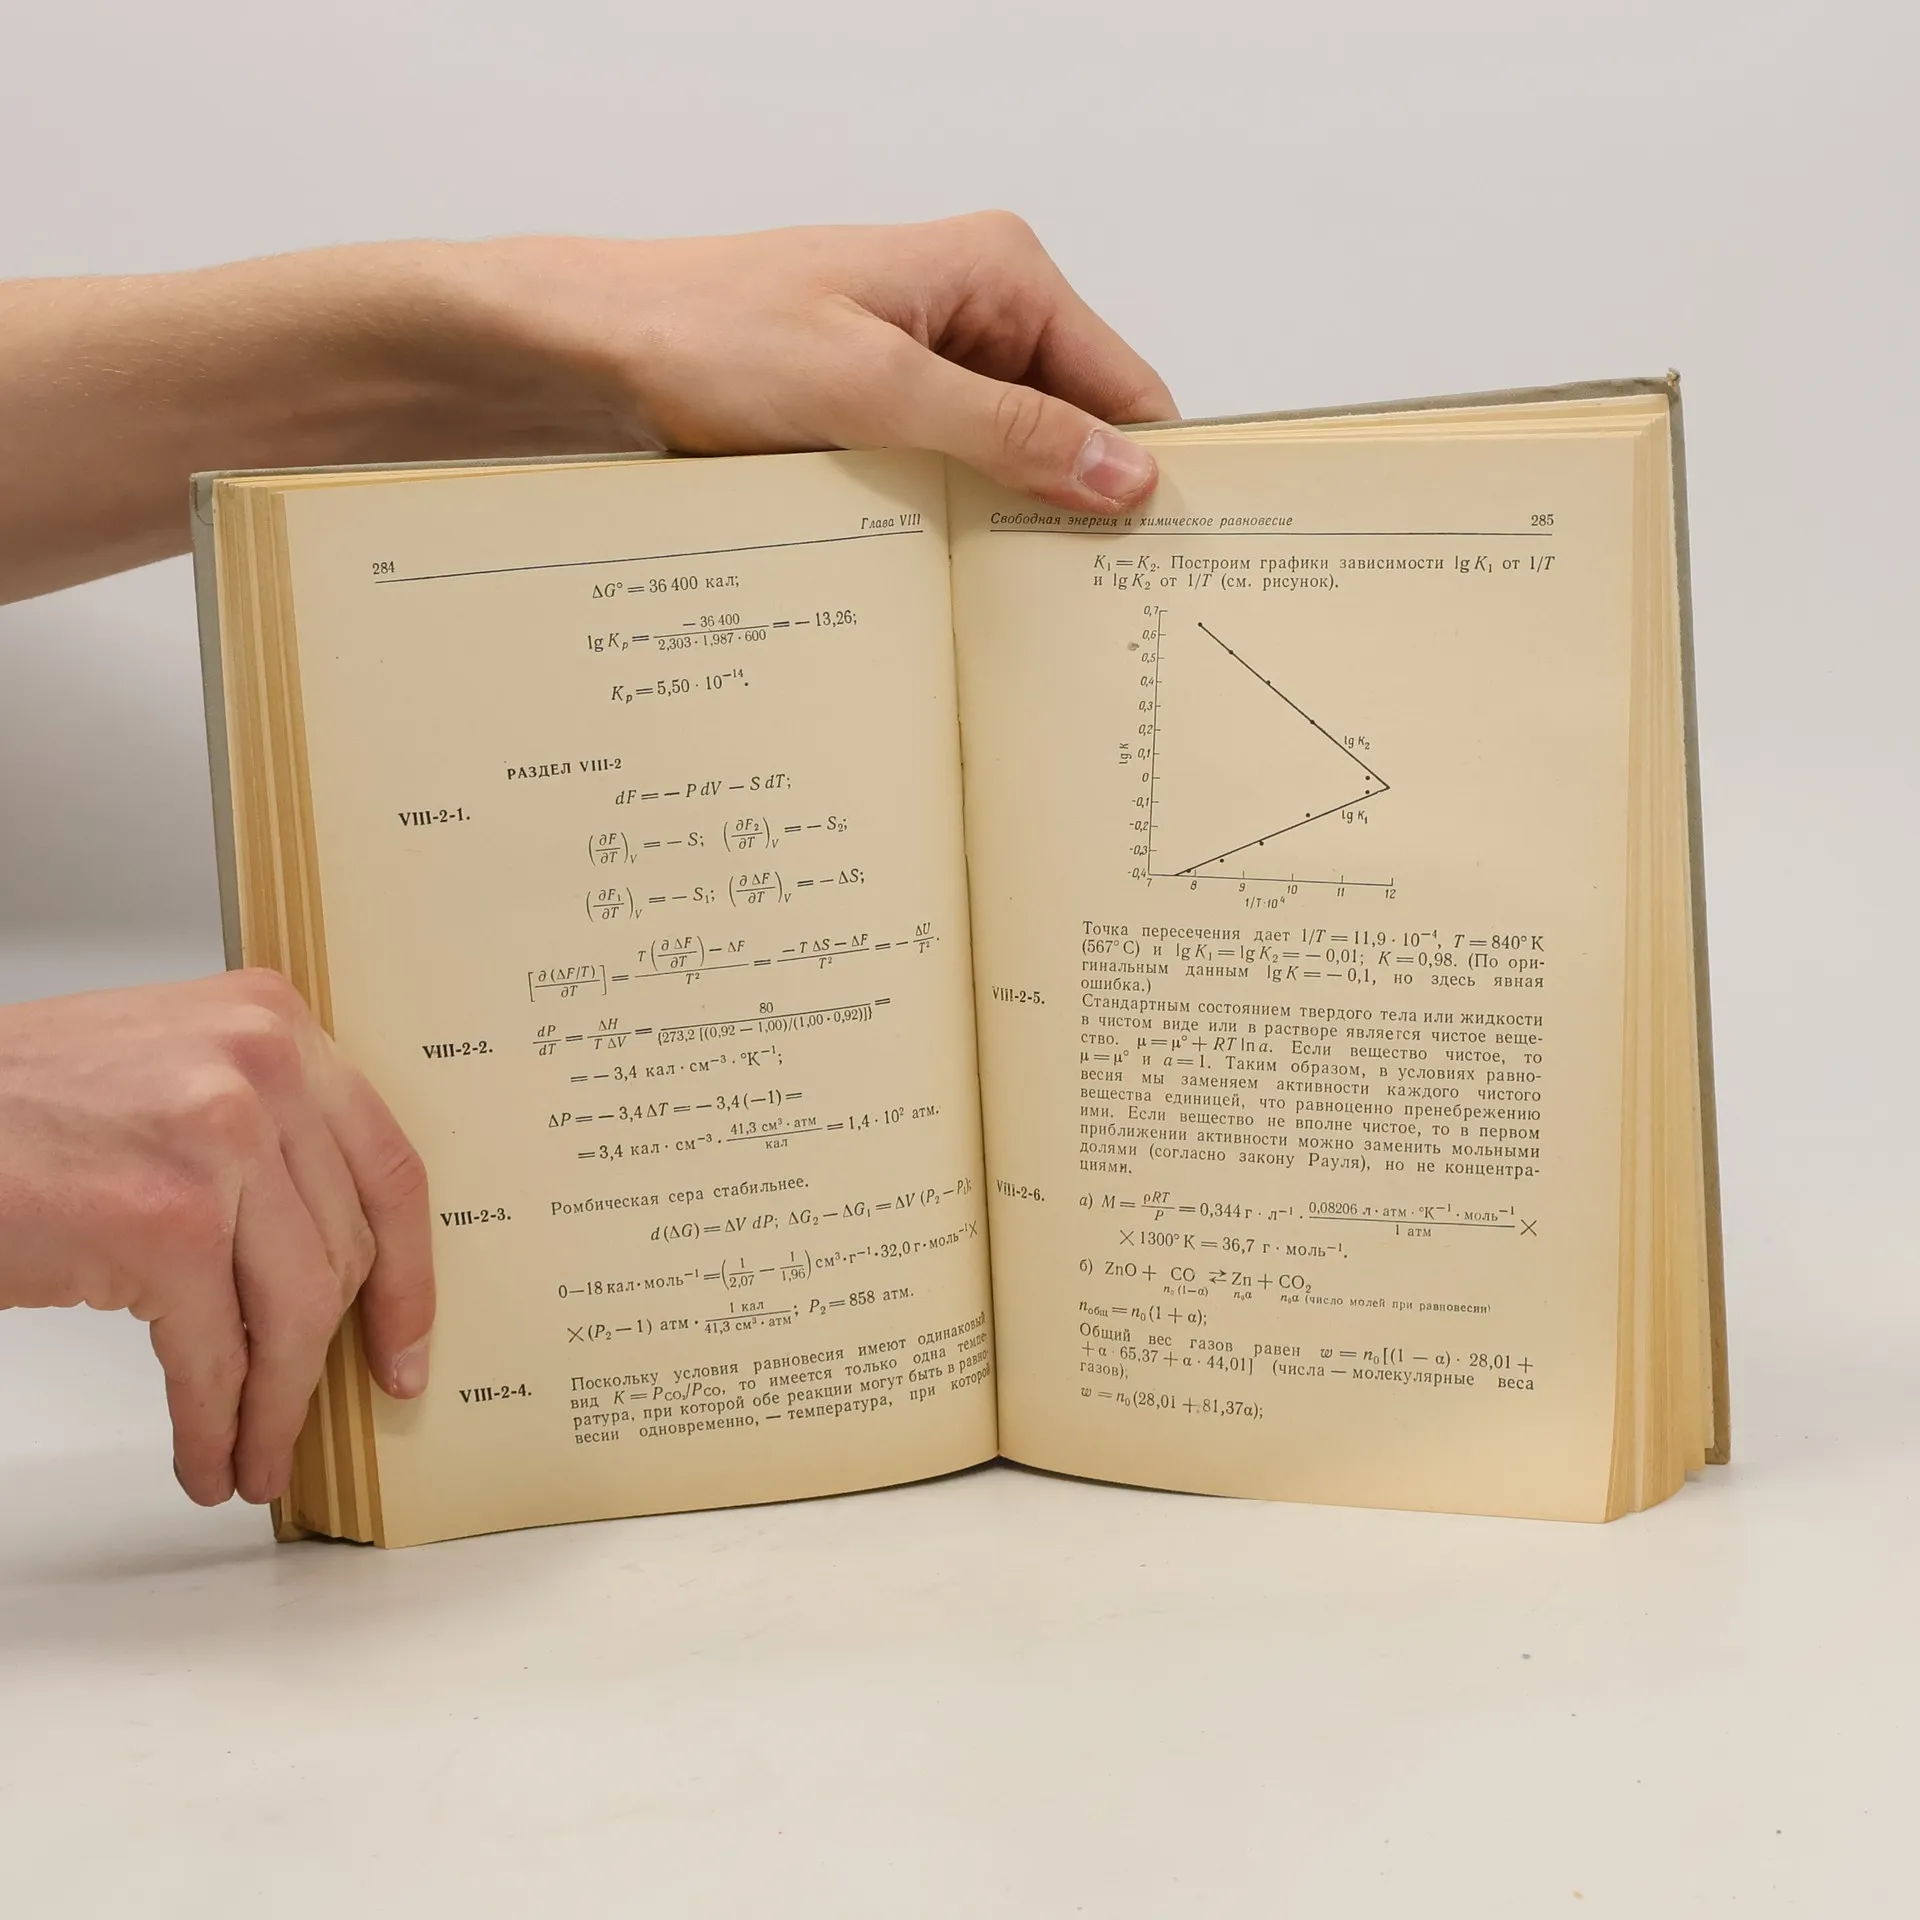 284
Глава VIII
ΔG° = 36 400 кал;
lg Kp = − 36 400 / 2,303 · 1,987 · 600 = − 13,26;
Kp = 5,50 · 10⁻¹⁴.
РАЗДЕЛ VIII-2
VIII-2-1.
dF = − P dV − S dT;
(∂F/∂T)V = − S; (∂F₂/∂T)V = − S₂;
(∂F₁/∂T)V = − S₁; (∂ ΔF/∂T)V = − ΔS;
[∂ (ΔF/T)/∂T] = T (∂ ΔF/∂T) − ΔF / T² = − T ΔS − ΔF / T² = − ΔU/T².
VIII-2-2. dP/dT = ΔH/T ΔV = 80 / {273,2 [(0,92 − 1,00)/(1,00 · 0,92)]} =
= − 3,4 кал · см⁻³ · °К⁻¹;
ΔP = − 3,4 ΔT = − 3,4 (−1) =
= 3,4 кал · см⁻³ · 41,3 см³ · атм / кал = 1,4 · 10² атм.
VIII-2-3. Ромбическая сера стабильнее.
d (ΔG) = ΔV dP; ΔG₂ − ΔG₁ = ΔV (P₂ − P₁);
0−18 кал · моль⁻¹ = (1/2,07 − 1/1,96) см³ · г⁻¹ · 32,0 г · моль⁻¹ ×
× (P₂ − 1) атм · 1 кал / 41,3 см³ · атм; P₂ = 858 атм.
VIII-2-4. Поскольку условия равновесия имеют одинаковый
вид K = PCO₂/PCO, то имеется только одна темпе-
ратура, при которой обе реакции могут быть в равно-
весии одновременно, — температура, при которой
Свободная энергия и химическое равновесие
285
K₁ = K₂. Построим графики зависимости lg K₁ от 1/T
и lg K₂ от 1/T (см. рисунок).
0,7
0,6
0,5
0,4
0,3
0,2
0,1
0
-0,1
-0,2
-0,3
-0,4
lg K
lg K₂
lg K₁
7 8 9 10 11 12
1/T·10⁴
Точка пересечения дает 1/T = 11,9 · 10⁻⁴, T = 840° К
(567° С) и lg K₁ = lg K₂ = − 0,01; K = 0,98. (По ори-
гинальным данным lg K = − 0,1, но здесь явная
ошибка.)
VIII-2-5. Стандартным состоянием твердого тела или жидкости
в чистом виде или в растворе является чистое веще-
ство. μ = μ° + RT ln a. Если вещество чистое, то
μ = μ° и a = 1. Таким образом, в условиях равно-
весия мы заменяем активности каждого чистого
вещества единицей, что равноценно пренебрежению
ими. Если вещество не вполне чистое, то в первом
приближении активности можно заменить мольными
долями (согласно закону Рауля), но не концентра-
циями.
VIII-2-6. а) M = ρRT/P = 0,344 г · л⁻¹ · 0,08206 л · атм · °К⁻¹ · моль⁻¹ / 1 атм ×
× 1300° К = 36,7 г · моль⁻¹.
б) ZnO + CO ⇄ Zn + CO₂
n₀ (1−α) n₀α n₀α (число молей при равновесии)
nобщ = n₀ (1 + α);
Общий вес газов равен w = n₀ [(1 − α) · 28,01 +
+ α · 65,37 + α · 44,01] (числа — молекулярные веса
газов),
w = n₀ (28,01 + 81,37α);